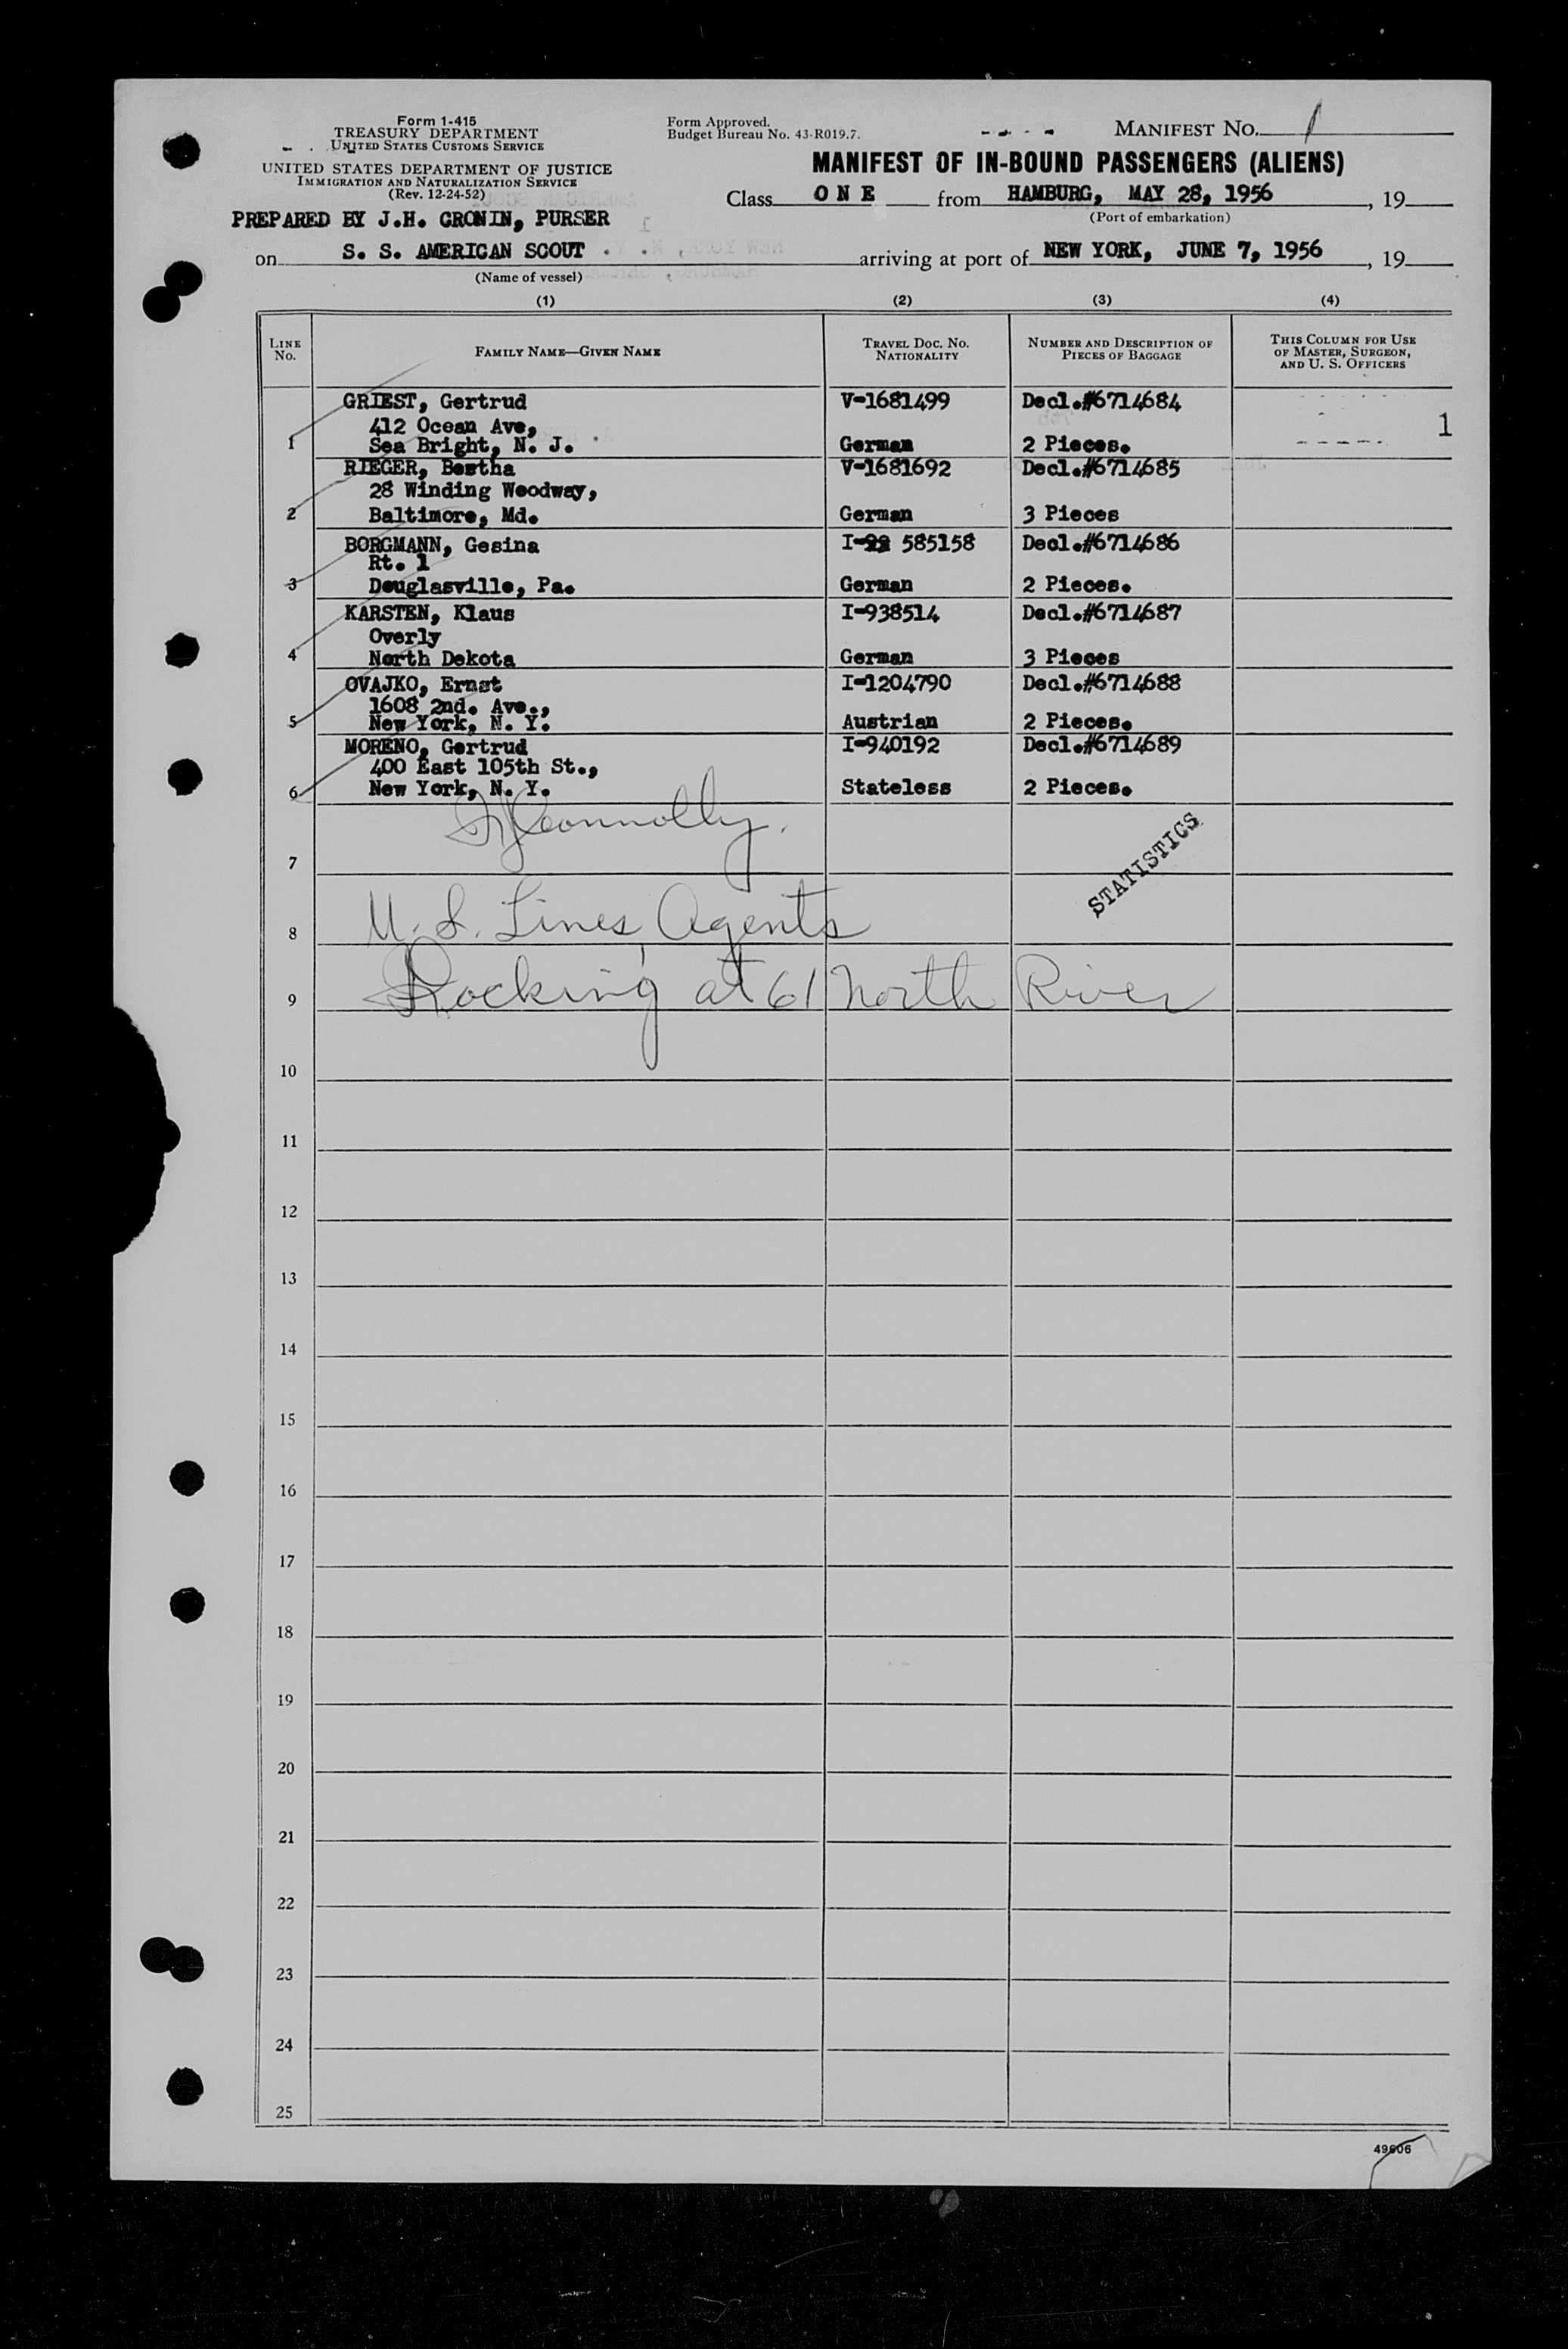 Form I-415
TREASURY DEPARTMENT
UNITED STATES CUSTOMS SERVICE
UNITED STATES DEPARTMENT OF JUSTICE
IMMIGRATION AND NATURALIZATION SERVICE
(Rev. 12-24-52)
PREPARED BY J.H. CRONIN, PURSER
Form Approved.
Budget Bureau No. 43-R019.7.
MANIFEST NO. 1
MANIFEST OF IN-BOUND PASSENGERS (ALIENS)
Class O N E from HAMBURG, MAY 28, 1956, 19
(Port of embarkation)
on S. S. AMERICAN SCOUT arriving at port of NEW YORK, JUNE 7, 1956, 19
(Name of vessel)
(1) (2) (3) (4)
LINE NO. FAMILY NAME—GIVEN NAME TRAVEL DOC. NO. NATIONALITY NUMBER AND DESCRIPTION OF PIECES OF BAGGAGE THIS COLUMN FOR USE OF MASTER, SURGEON, AND U. S. OFFICERS
GRIEST, Gertrud V-1681499 Decl.#6714684
412 Ocean Ave, 1
1 Sea Bright, N. J. German 2 Pieces.
RIEGER, Bertha V-1681692 Decl.#6714685
28 Winding Woodway,
2 Baltimore, Md. German 3 Pieces
BORGMANN, Gesina I- 585158 Decl.#6714686
Rt. 1
3 Douglasville, Pa. German 2 Pieces.
KARSTEN, Klaus I-938514 Decl.#6714687
Overly
4 North Dekota German 3 Pieces
OVAJKO, Ernst I-1204790 Decl.#6714688
1608 2nd. Ave.,
5 New York, N. Y. Austrian 2 Pieces.
MORENO, Gertrud I-940192 Decl.#6714689
400 East 105th St.,
6 New York, N. Y. Stateless 2 Pieces.
Connolly.
7
STATISTICS
8 U. S. Lines, Agents
9 Docking at 61 North River
10
11
12
13
14
15
16
17
18
19
20
21
22
23
24
25
49606